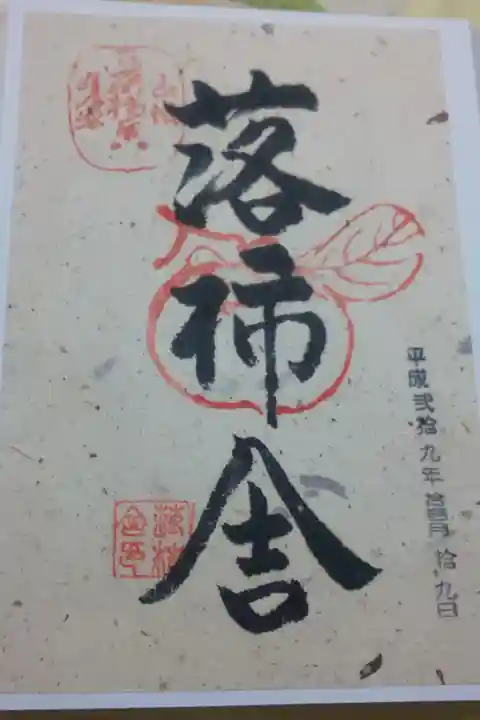 落柿舎
平成弐拾九年拾壱月拾九日
落柿舎印